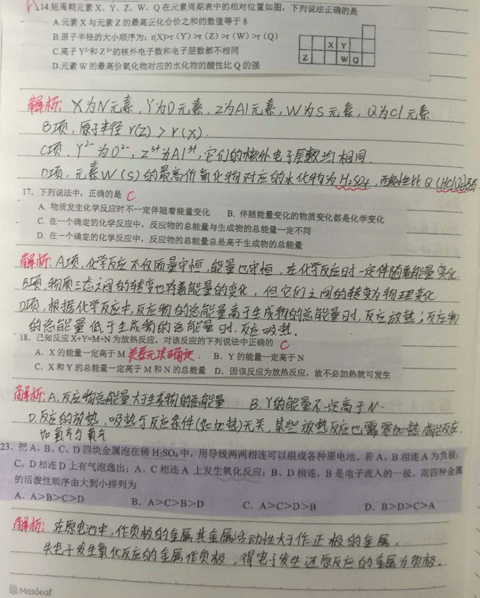 14.短周期元素X、Y、Z、W、Q在元素周期表中的相对位置如图，下列说法正确的是
A.元素X与元素Z的最高正化合价之和的数值等于8
B.原子半径的大小顺序为：r(X)>r(Y)>r(Z)>r(W)>r(Q)
C.离子Y²⁻和Z³⁺的核外电子数和电子层数都不相同
D.元素W的最高价氧化物对应的水化物的酸性比Q的强
X Y
Z W Q
解析: X为N元素，Y为O元素，Z为Al元素，W为S元素，Q为Cl元素
B项，原子半径r(Z)>r(X).
C项，Y²⁻为O²⁻，Z³⁺为Al³⁺，它们的核外电子层数均相同.
D项，元素W(S)的最高价氧化物对应的水化物为H₂SO₄，酸性比Q(HClO₄)弱
17. 下列说法中，正确的是 C
A. 物质发生化学反应时不一定伴随着能量变化 B. 伴随能量变化的物质变化都是化学变化
C. 在一个确定的化学反应中，反应物的总能量与生成物的总能量一定不同
D. 在一个确定的化学反应中，反应物的总能量总是高于生成物的总能量
解析: A项，化学反应不仅质量守恒，能量也守恒，在化学反应时一定伴随着能量变化
B项，物质三态之间的转变也有着能量的变化，但它们之间的转变为物理变化
D项，根据化学反应中，反应物的总能量高于生成物的总能量时，反应放热；反应物
的总能量低于生成物的总能量时，反应吸热.
18. 已知反应X+Y=M+N为放热反应，对该反应的下列说法中正确的 C
A. X的能量一定高于M 关系无法确定. B. Y的能量一定高于N
C. X和Y的总能量一定高于M和N的总能量 D. 因该反应为放热反应，故不必加热就可发生
解析: A.反应物总能量大于生成物的总能量 B.Y的能量不一定高于N.
D.反应的放热，吸热与反应条件(如加热)无关，某些放热反应也需要加热才能反应.
如氢气与氧气
23. 把A、B、C、D四块金属泡在稀H₂SO₄中，用导线两两相连可以组成各种原电池。若A、B相连A为负极；
C，D相连D上有气泡逸出；A、C相连A上发生氧化反应；B、D相连，B是电子流入的一极，则四种金属
的活泼性顺序由大到小排列为
A．A>B>C>D B．A>C>B>D C．A>C>D>B D．B>D>C>A
解析: 在原电池中，作负极的金属其金属活动性大于作正极的金属，
失电子发生氧化反应的金属作负极，得电子发生还原反应的金属为负极.
Maxleaf